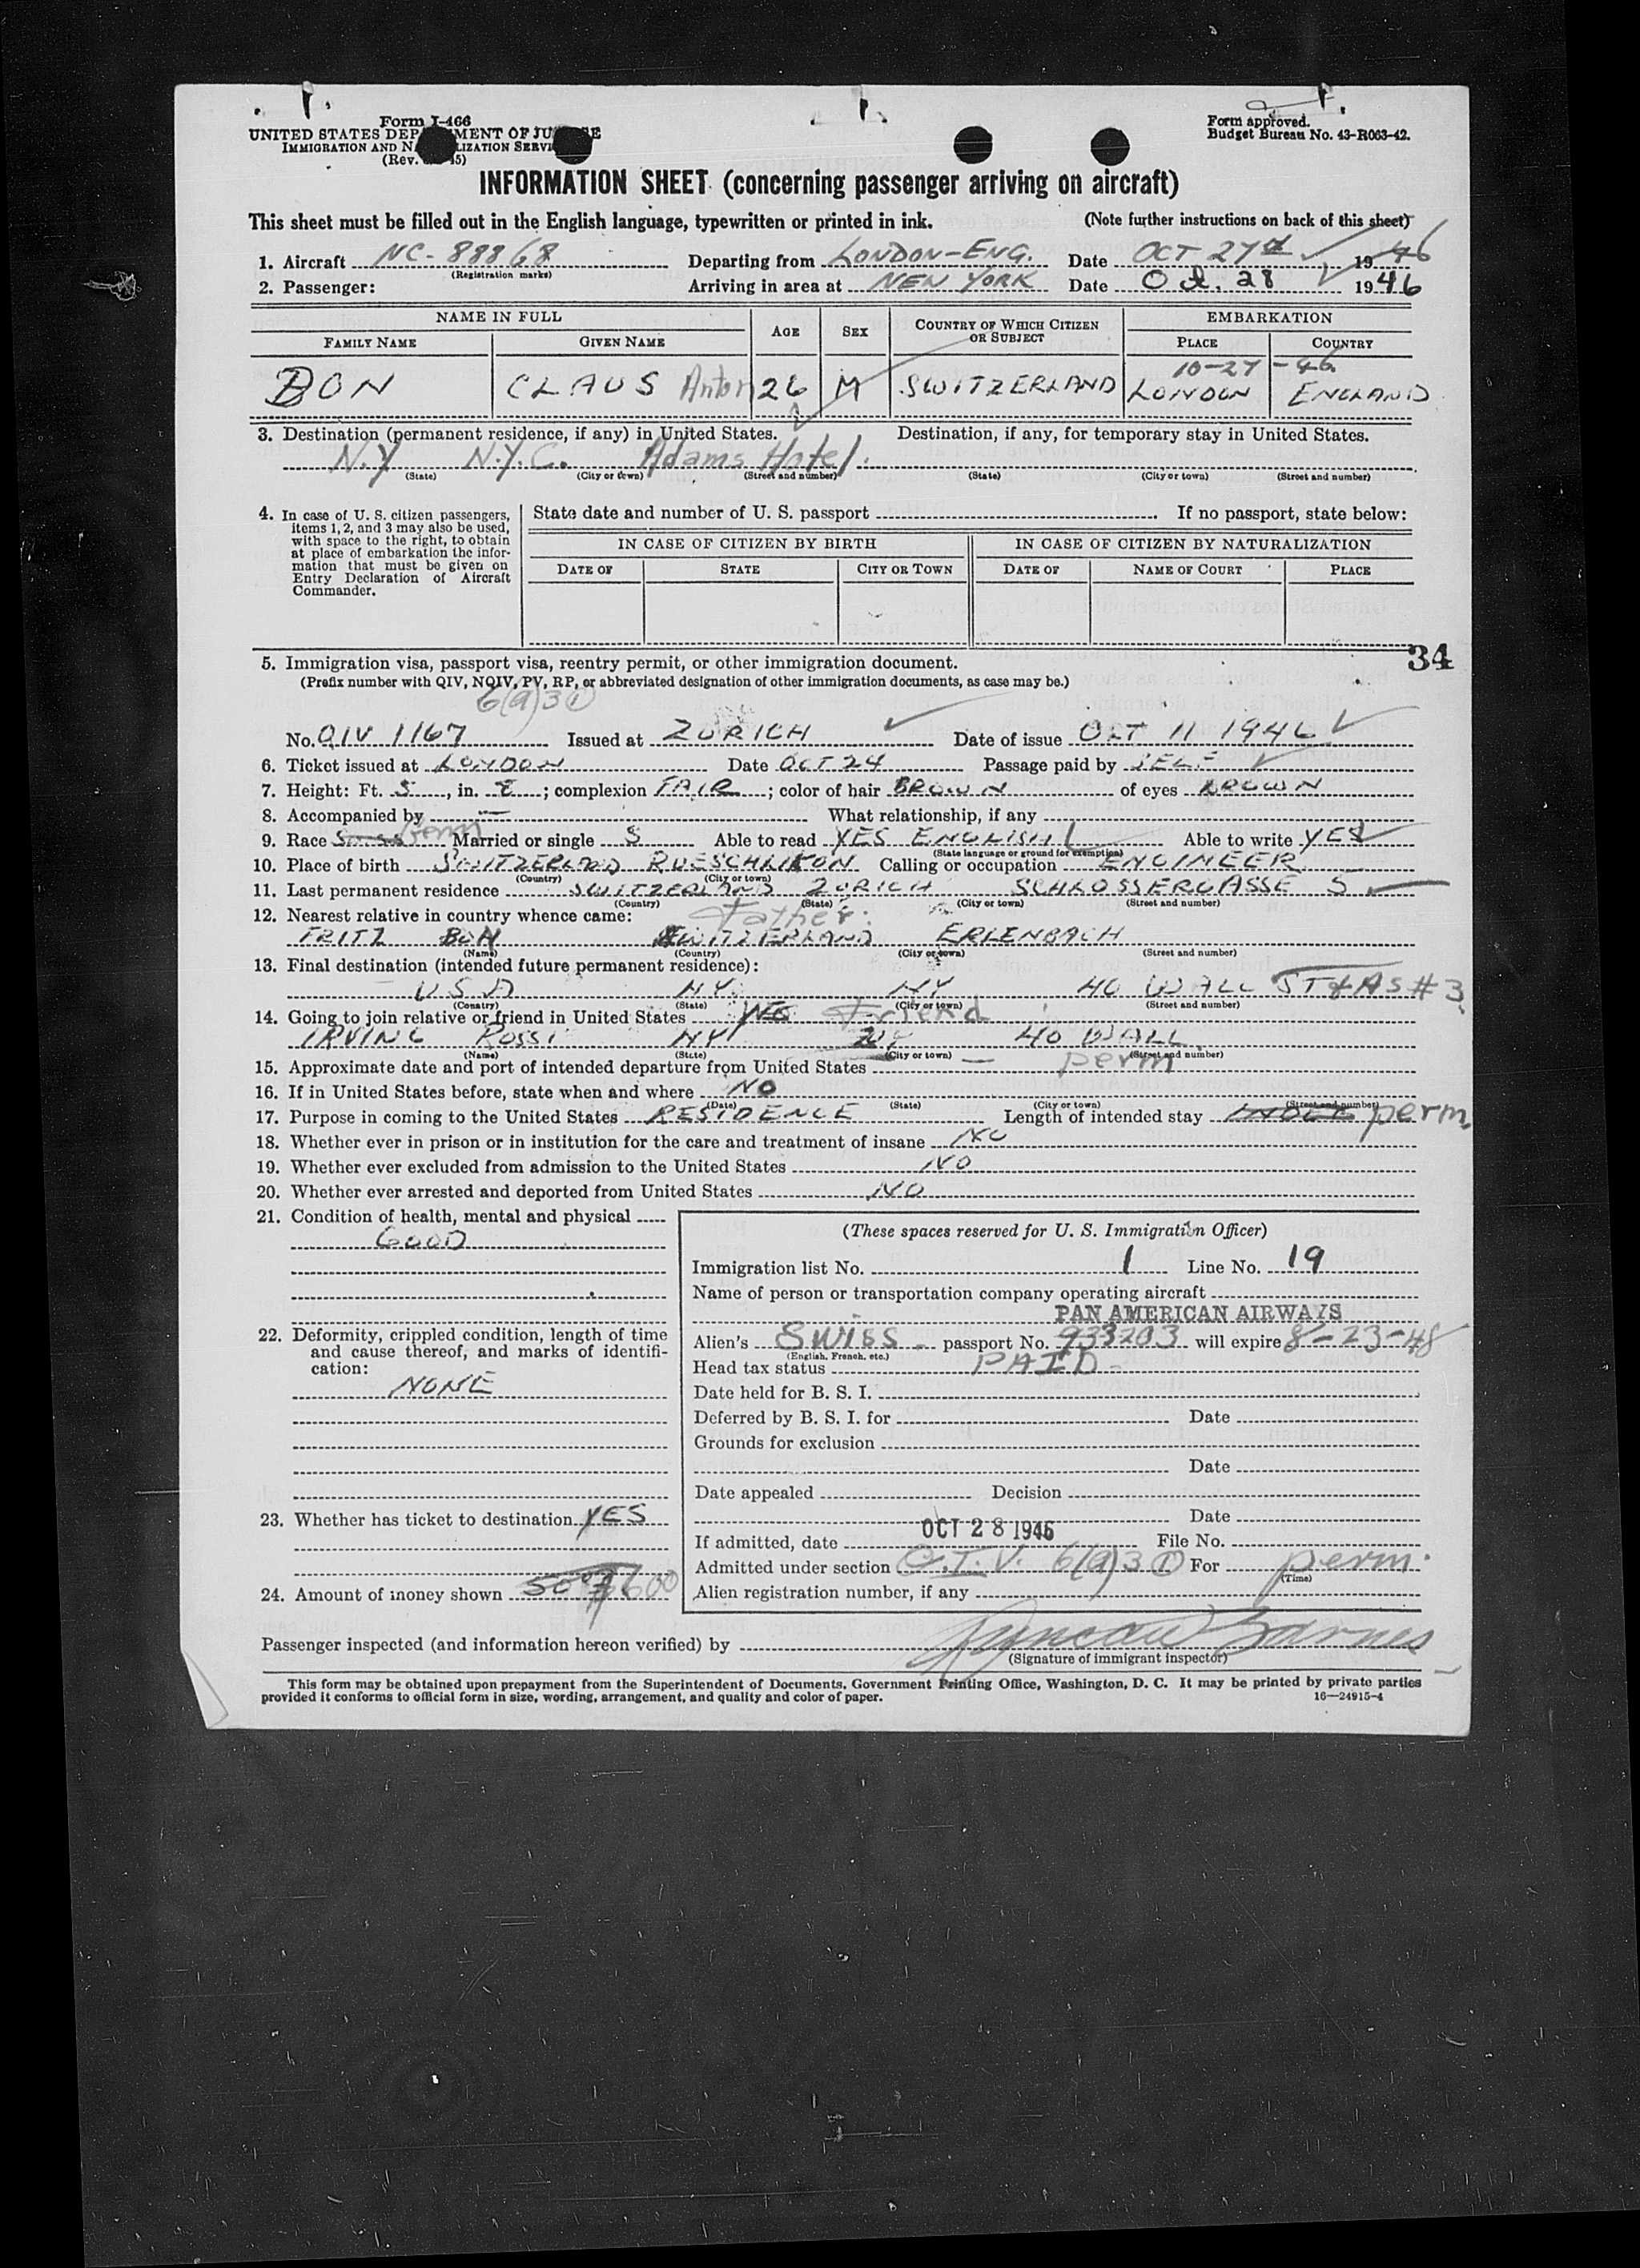 Form I-466
UNITED STATES DEPARTMENT OF JUSTICE
IMMIGRATION AND NATURALIZATION SERVICE
(Rev. 45)
Form approved.
Budget Bureau No. 43-R063-42.
INFORMATION SHEET (concerning passenger arriving on aircraft)
This sheet must be filled out in the English language, typewritten or printed in ink. (Note further instructions on back of this sheet)
1. Aircraft NC-88868 Departing from LONDON-ENG. Date OCT 27th 1946
(Registration marks)
2. Passenger: Arriving in area at NEW YORK Date Oct. 28 1946
NAME IN FULL AGE SEX COUNTRY OF WHICH CITIZEN OR SUBJECT EMBARKATION
FAMILY NAME GIVEN NAME PLACE COUNTRY
10-27-46
BON CLAUS Anton 26 M SWITZERLAND LONDON ENGLAND
3. Destination (permanent residence, if any) in United States. Destination, if any, for temporary stay in United States.
N.Y N.Y.C. Adams Hotel.
(State) (City or town) (Street and number) (State) (City or town) (Street and number)
4. In case of U. S. citizen passengers, items 1, 2, and 3 may also be used, with space to the right, to obtain at place of embarkation the information that must be given on Entry Declaration of Aircraft Commander.
State date and number of U. S. passport If no passport, state below:
IN CASE OF CITIZEN BY BIRTH IN CASE OF CITIZEN BY NATURALIZATION
DATE OF STATE CITY OR TOWN DATE OF NAME OF COURT PLACE
34
5. Immigration visa, passport visa, reentry permit, or other immigration document.
(Prefix number with QIV, NQIV, PV, RP, or abbreviated designation of other immigration documents, as case may be.)
6(a)3(1)
No. QIV 1167 Issued at ZURICH Date of issue OCT 11 1946
6. Ticket issued at LONDON Date OCT 24 Passage paid by SELF
7. Height: Ft. 5, in. 8; complexion FAIR; color of hair BROWN of eyes BROWN
8. Accompanied by — What relationship, if any
9. Race Swiss Germ Married or single S Able to read YES ENGLISH Able to write YES
(State language or ground for exemption)
10. Place of birth SWITZERLAND RUESCHLIKON Calling or occupation ENGINEER
(Country) (City or town)
11. Last permanent residence SWITZERLAND ZURICH SCHLOSSERGASSE 5
(Country) (State) (City or town) (Street and number)
12. Nearest relative in country whence came: Father:
FRITZ BON SWITZERLAND ERLENBACH
(Name) (Country) (City or town) (Street and number)
13. Final destination (intended future permanent residence):
USA NY. NY 40 WALL ST AS #3
(Country) (State) (City or town) (Street and number)
14. Going to join relative or friend in United States Friend
IRVING ROSSI NY NY 40 WALL
(Name) (State) (City or town) (Street and number)
15. Approximate date and port of intended departure from United States — perm
16. If in United States before, state when and where NO
(Date) (State) (City or town) (Street and number)
17. Purpose in coming to the United States RESIDENCE Length of intended stay perm.
18. Whether ever in prison or in institution for the care and treatment of insane NO
19. Whether ever excluded from admission to the United States NO
20. Whether ever arrested and deported from United States NO
21. Condition of health, mental and physical
GOOD
22. Deformity, crippled condition, length of time and cause thereof, and marks of identification:
NONE
23. Whether has ticket to destination YES
24. Amount of money shown 600
(These spaces reserved for U. S. Immigration Officer)
Immigration list No. 1 Line No. 19
Name of person or transportation company operating aircraft
PAN AMERICAN AIRWAYS
Alien's Swiss passport No. 933203 will expire 8-23-48
(English, French, etc.)
Head tax status PAID
Date held for B. S. I.
Deferred by B. S. I. for Date
Grounds for exclusion
Date
Date appealed Decision
Date
If admitted, date OCT 28 1946 File No.
Admitted under section Q.I.V. 6(a)3(1) For perm.
(Time)
Alien registration number, if any
Passenger inspected (and information hereon verified) by
(Signature of immigrant inspector)
This form may be obtained upon prepayment from the Superintendent of Documents, Government Printing Office, Washington, D. C. It may be printed by private parties
provided it conforms to official form in size, wording, arrangement, and quality and color of paper. 16—24915-4